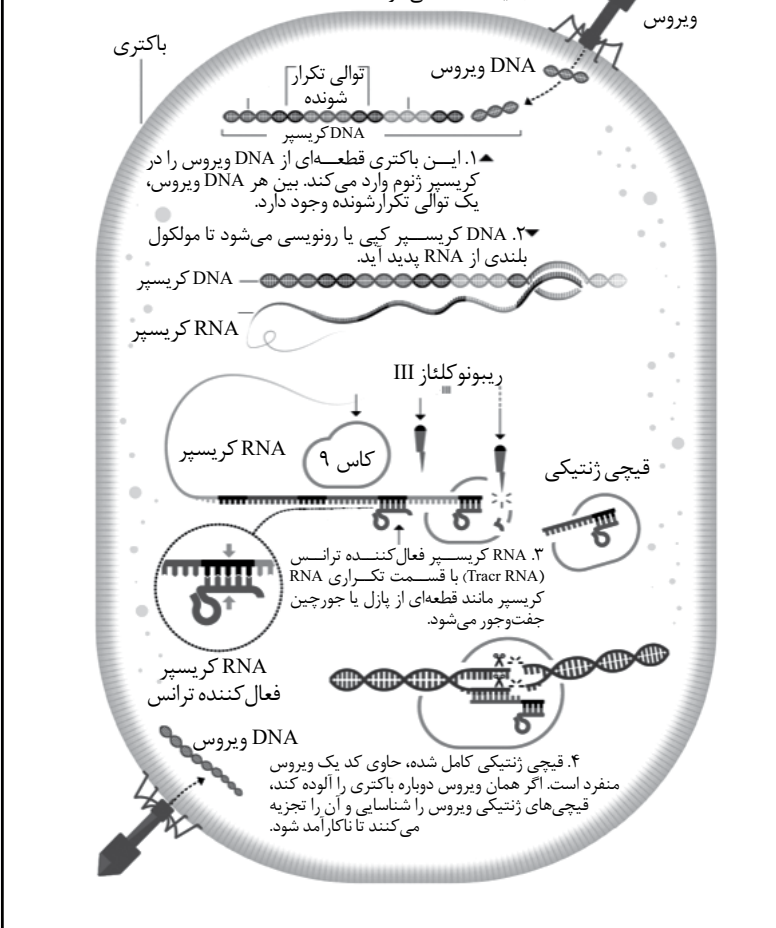 ویروس
باکتری
DNA ویروس
توالی تکرار
شونده
DNA کریسپر
۱. این باکتری قطعه‌ای از DNA ویروس را در
کریسپر ژنوم وارد می‌کند. بین هر DNA ویروس،
یک توالی تکرارشونده وجود دارد.
۲. DNA کریسپر کپی یا رونویسی می‌شود تا مولکول
بلندی از RNA پدید آید.
DNA کریسپر
RNA کریسپر
ریبونوکلئاز III
III
RNA کریسپر
کاس ۹
قیچی ژنتیکی
۳. RNA کریسپر فعال‌کننده ترانس
(Tracr RNA) با قسمت تکراری RNA
کریسپر مانند قطعه‌ای از پازل یا جورچین
جفت‌وجور می‌شود.
RNA کریسپر
فعال‌کننده ترانس
DNA ویروس
۴. قیچی ژنتیکی کامل شده، حاوی کد یک ویروس
منفرد است. اگر همان ویروس دوباره باکتری را آلوده کند،
قیچی‌های ژنتیکی ویروس را شناسایی و آن را تجزیه
می‌کنند تا ناکارآمد شود.